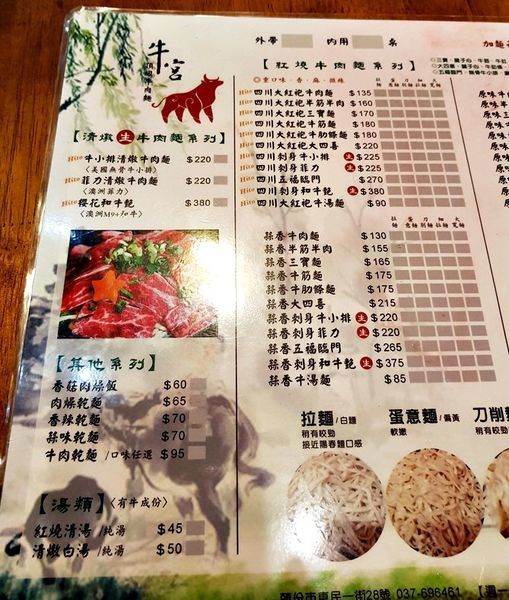 牛宮
外帶 內用 桌
【清燉生牛肉麵系列】
牛小排清燉牛肉麵 $220
〈美國無骨牛小排〉
菲力清燉牛肉麵 $220
〈澳洲菲力〉
櫻花和牛麭 $380
〈澳洲M9+和牛〉
【其他系列】
香菇肉燥飯 $60
肉燥乾麵 $65
香辣乾麵 $70
蒜味乾麵 $70
牛肉乾麵 /口味任選 $95
【湯類】〈有牛成份〉
紅燒清湯 /純湯 $45
清燉白湯 /純湯 $50
【紅燒牛肉麵系列】
重口味、香、麻、微辣
四川大紅袍牛肉麵 $135
四川大紅袍牛筋半肉 $160
四川大紅袍三寶麵 $170
四川大紅袍牛筋麵 $180
四川大紅袍牛肋條麵 $180
四川大紅袍大四喜
四川剁身牛小排 生 $225
四川剁身菲力 生 $225
四川五福臨門 $270
四川剁身和牛麭 生 $380
四川大紅袍牛湯麵 $90
蒜香牛肉麵 $130
蒜香半筋半肉 $155
蒜香三寶麵 $165
蒜香牛筋麵 $175
蒜香牛肋條麵 $175
蒜香大四喜 $215
蒜香剁身牛小排 生 $220
蒜香剁身菲力 生 $220
蒜香五福臨門 $265
蒜香剁身和牛麭 生 $375
蒜香牛湯麵 $85
拉麵 /白麵
稍有咬勁
接近陽春麵口感
蛋意麵 /偏黃
軟嫩
刀削麵
稍有咬勁
頭份市東民一街28號 037-696461 【週一